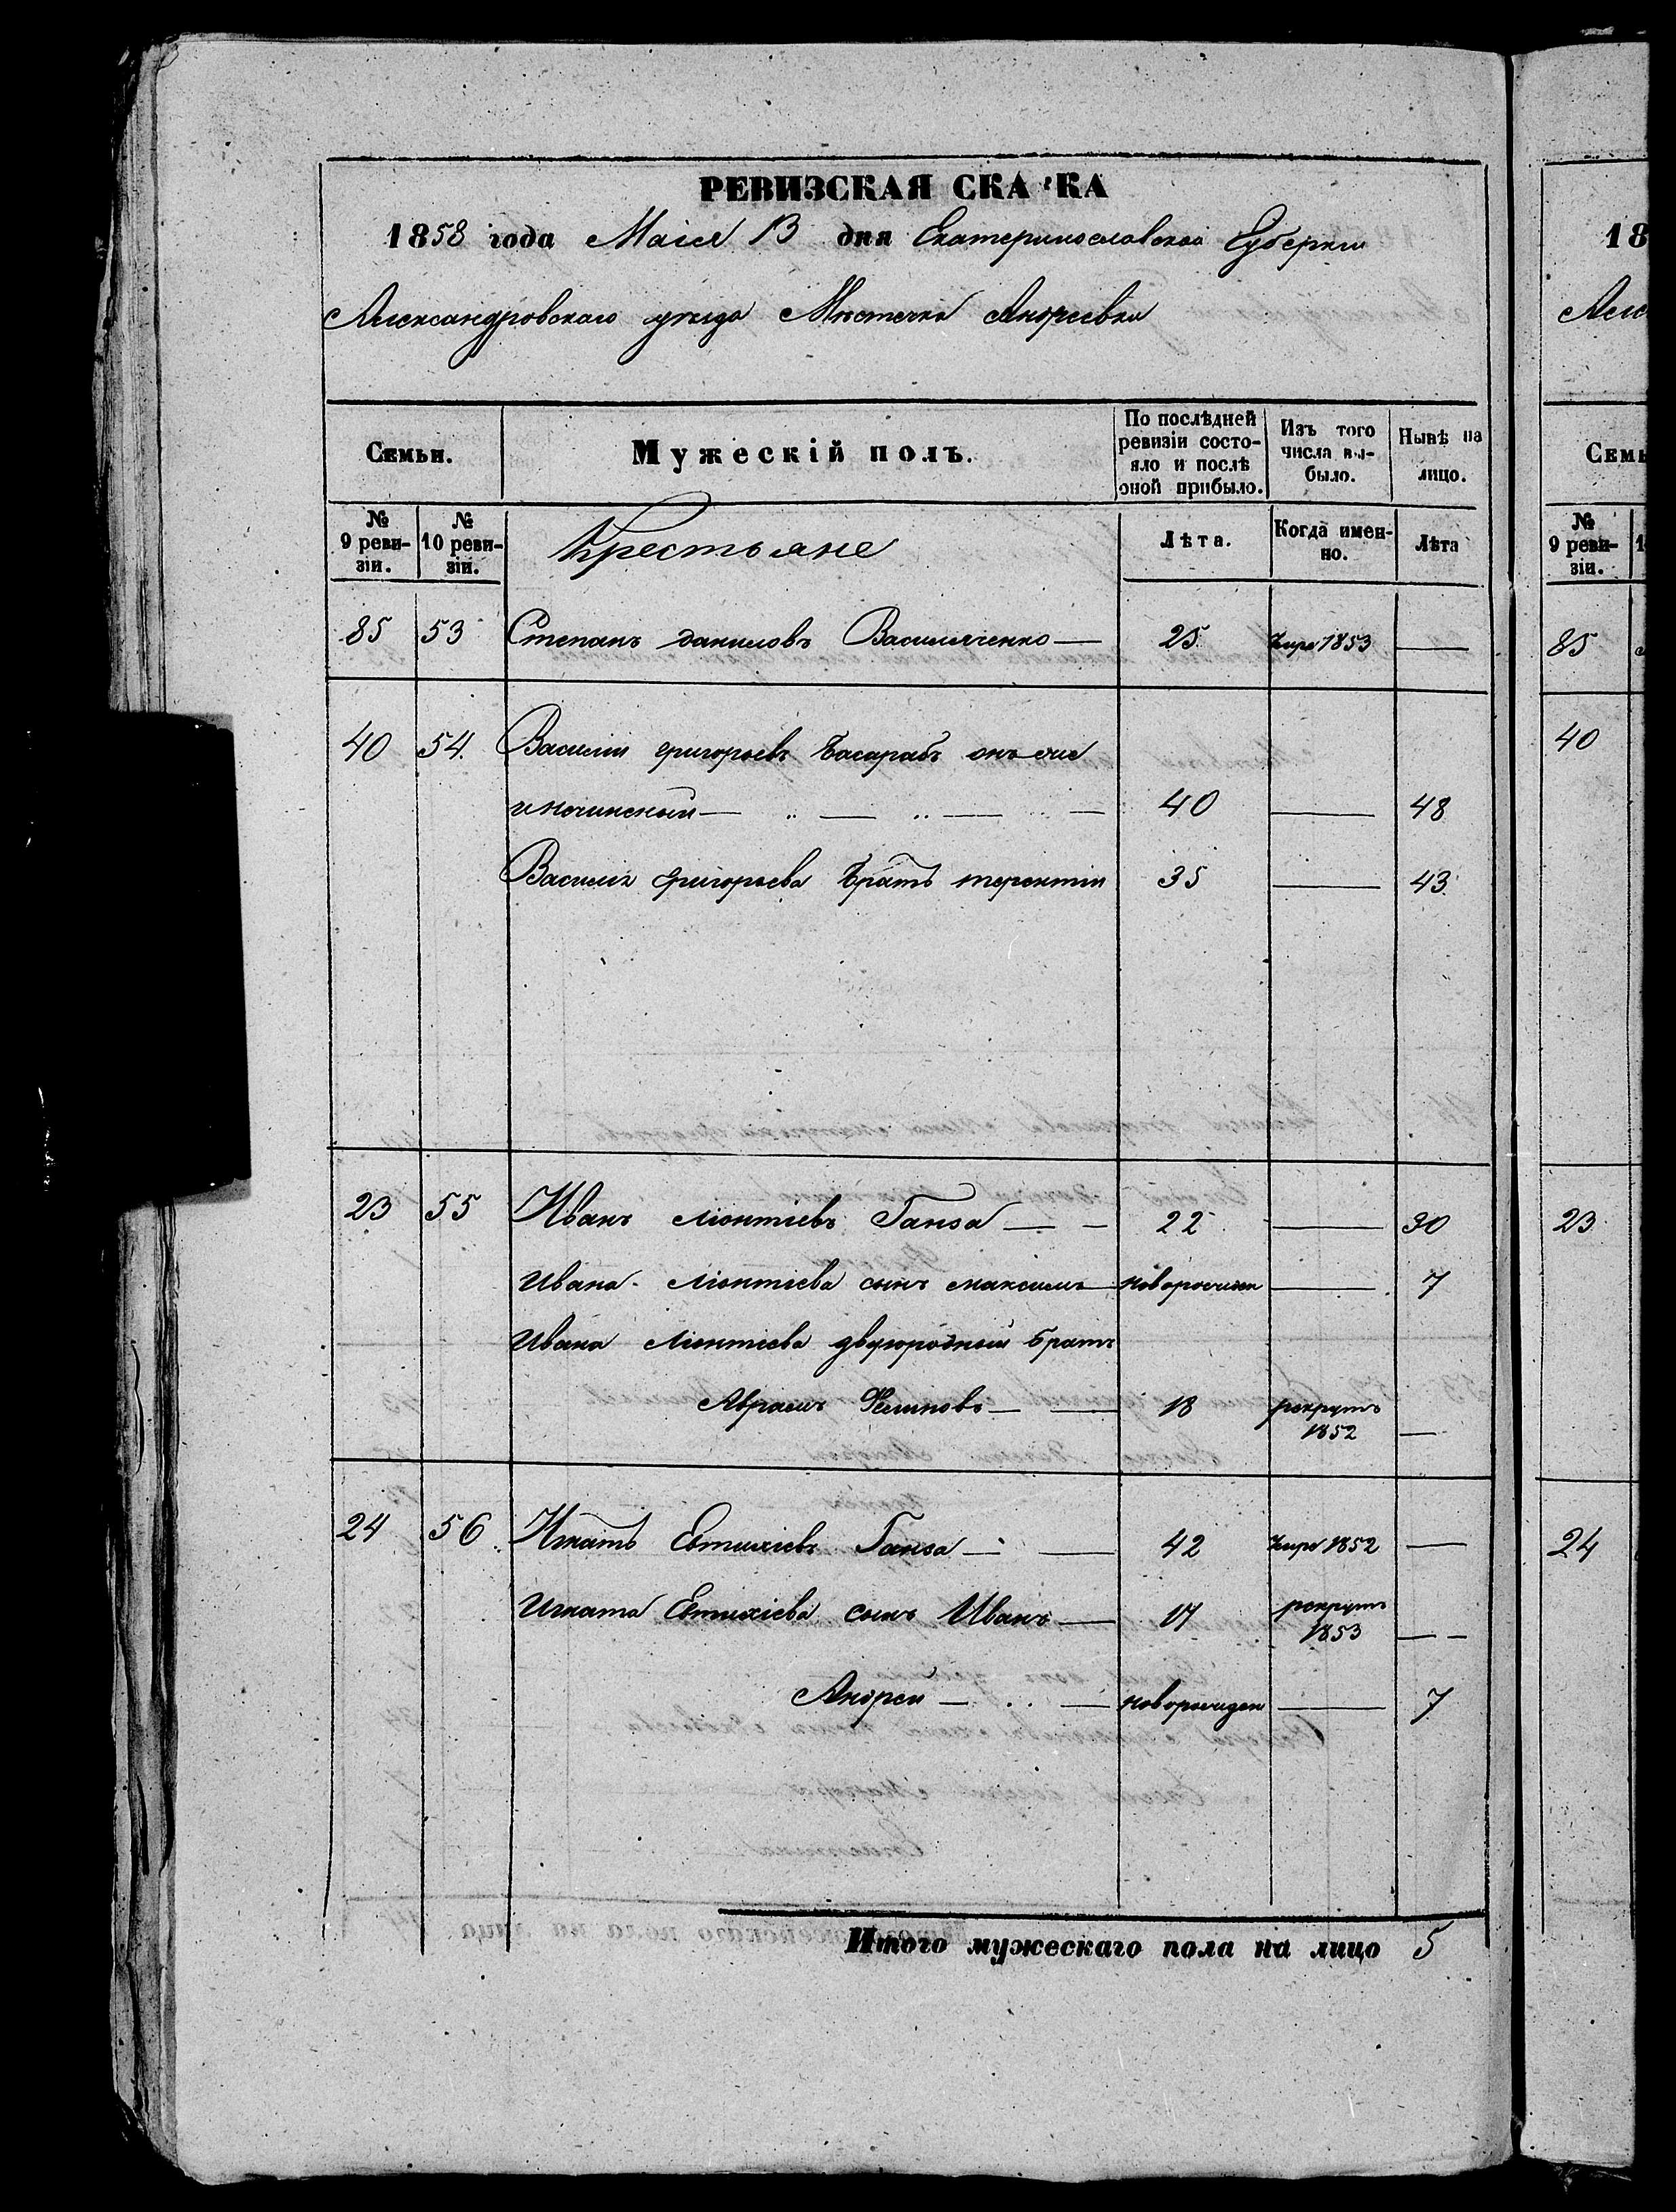 РЕВИЗСКАЯ СКА КА
1858 года Маія 13 дня Екатеринославской Губерніи
Александровскаго уезда Местечка Андреевки
Семьи.
Мужескій полъ.
По послѣдней ревизіи состояло и послѣ оной прибыло.
Изъ того числа выбыло.
Нынѣ на лицо.
№ 9 ревизіи.
№ 10 ревизіи.
Крестьяне
Лѣта.
Когда именно.
Лѣта
85 53 Степанъ даниловъ Василяченко — 25 умре 1853 —
40 54 Василій григорьевъ Басарабъ онъ же
40 — 48
Василія Григорьева Братъ терентій 35 — 43
23 55 Иванъ Ліонтіевъ Ганза — 22 — 30
Ивана Ліонтіева сынъ максимъ новорожден — 7
Ивана Ліонтіева двуюродный братъ
Аврамъ 18 рекрутъ 1852 —
24 56 Игнатъ Евтихіевъ Ганза — 42 умре 1852 —
Игната Евтихіева сынъ Иванъ — 17 рекрутъ 1853 —
Андрей — новорожден — 7
Итого мужескаго пола на лицо 5
18
Алек
Семь
№ 9 ревизіи.
85
40
23
24